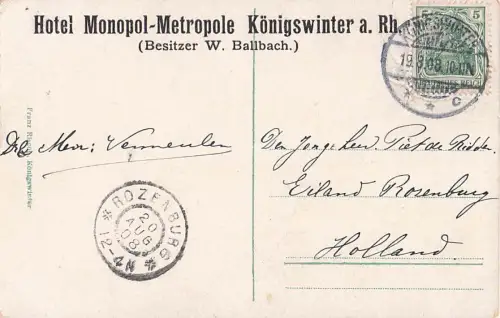 Hotel Monopol-Metropole Königswinter a. Rh.
(Besitzer W. Ballbach.)
5
KÖNIGSWINTER
19.8.08.10-11N
* * c
DEUTSCHES REICH
Mevr: Vermeulen
Den Jonge heer Piet de Ridder
Eiland Rosenburg
Holland
* ROZENBURG *
20
AUG
08
12-4N
Königswinter